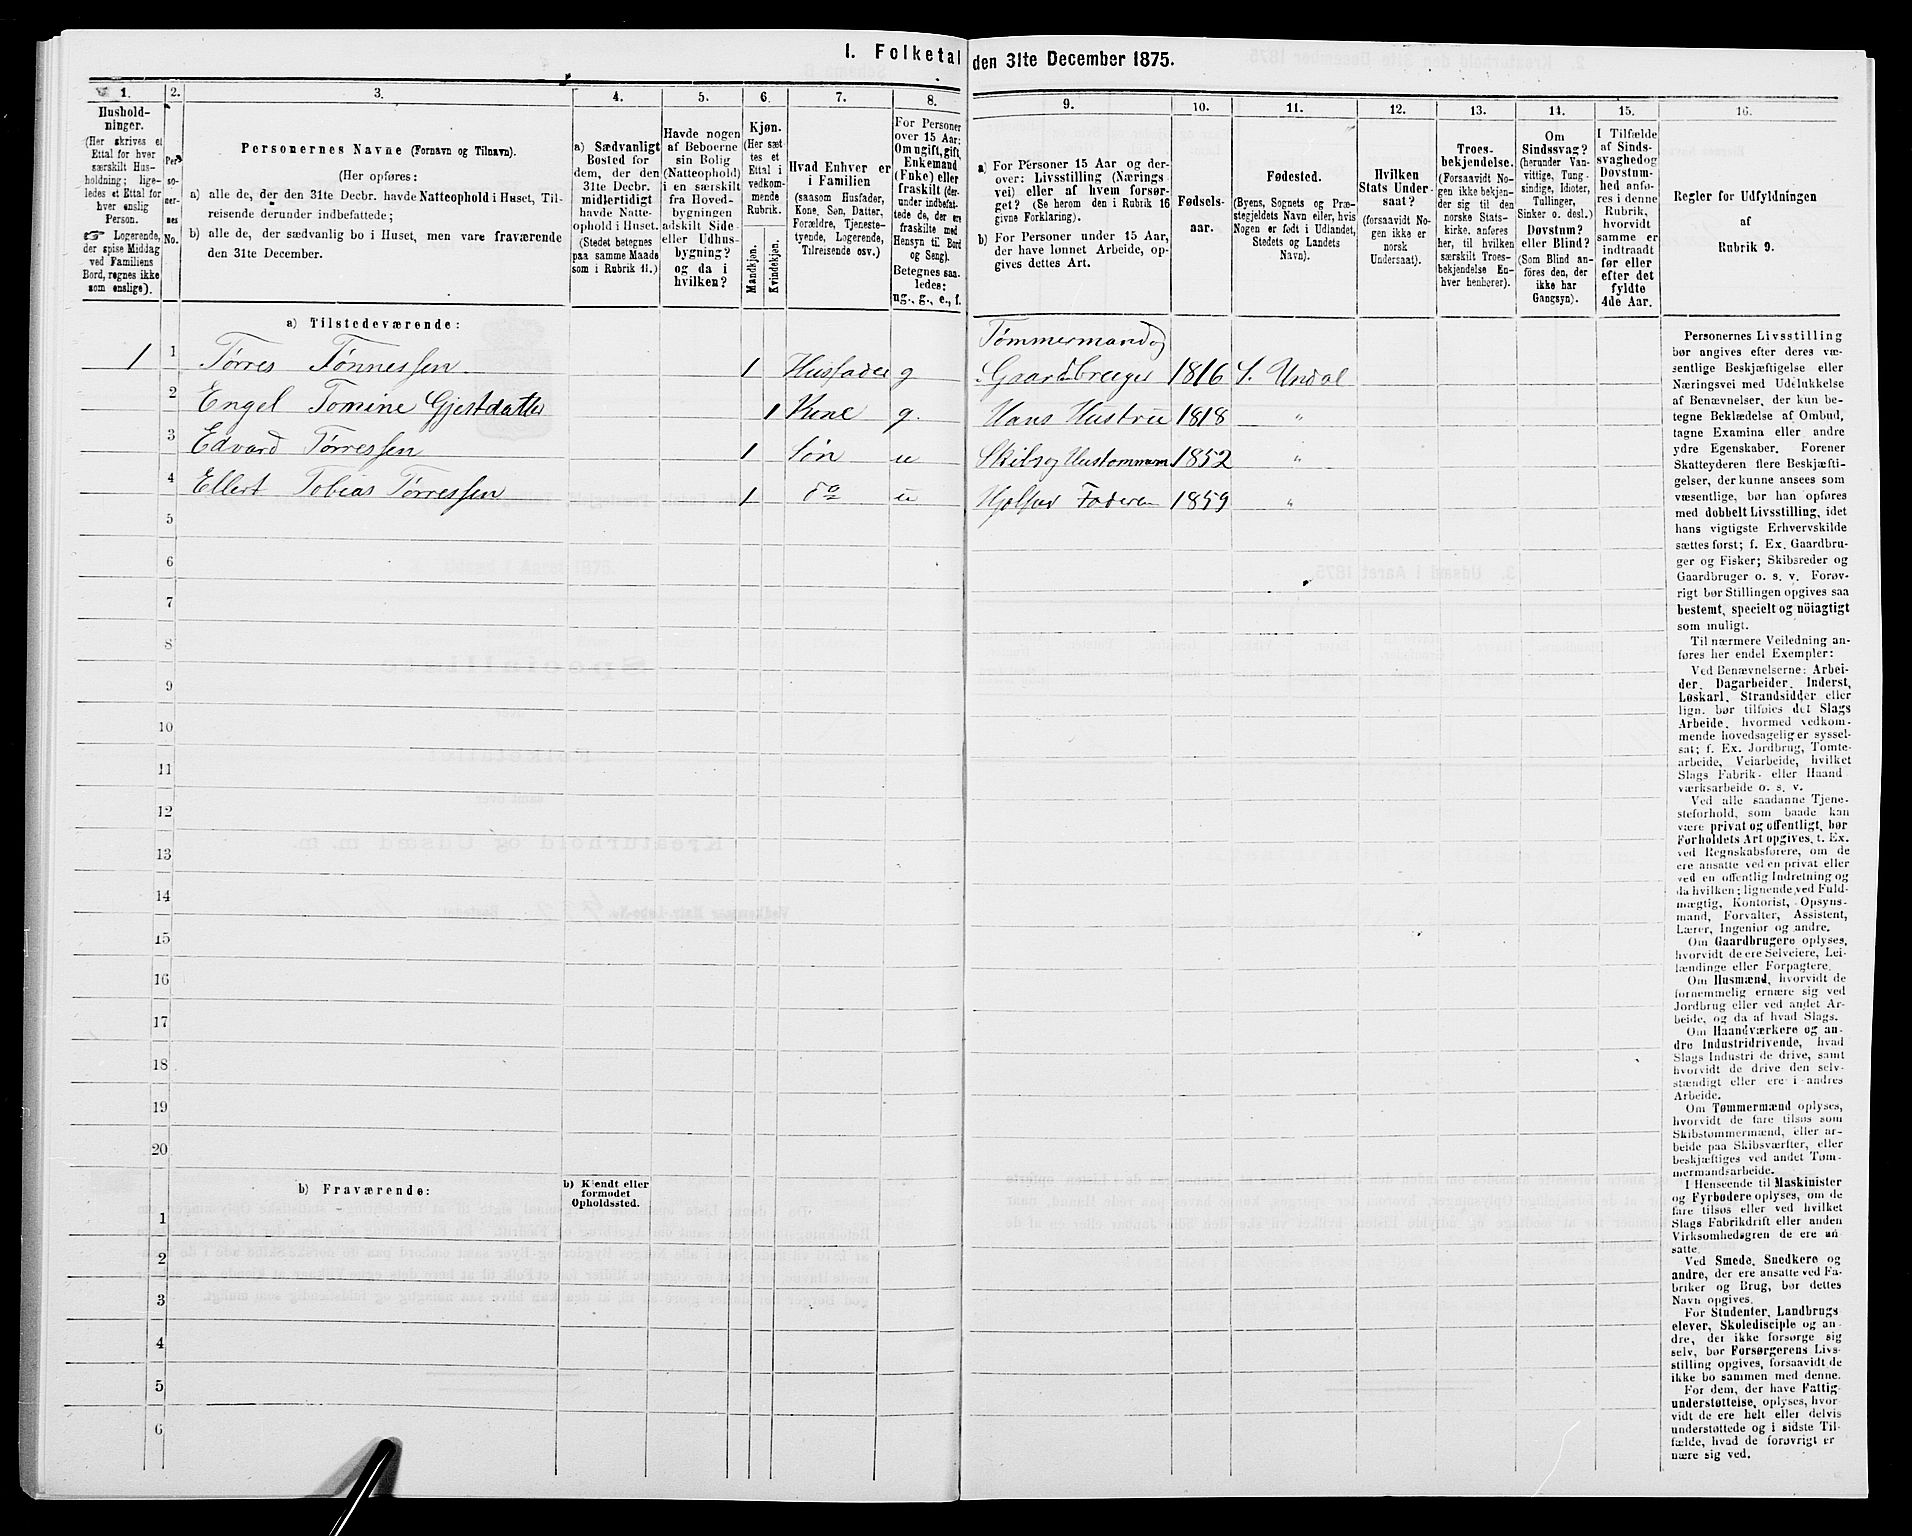 I. Folketal den 31te December 1875.
1.
Hushold-
ninger.
(Her skrives et
Ettal for hver
særskilt Hus-
holdning; lige-
ledes et Ettal for
hver enslig
Person.
☞ Logerende,
der spise Middag
ved Familiens
Bord, regnes ikke
som enslige).
2.
Per-
so-
ner-
nes
No.
3.
Personernes Navne (Fornavn og Tilnavn).
(Her opføres:
a) alle de, der den 31te Decbr. havde Natteophold i Huset, Til-
reisende derunder indbefattede;
b) alle de, der sædvanlig bo i Huset, men vare fraværende
den 31te December.
4.
a) Sædvanligt
Bosted for
dem, der den
31te Decbr.
midlertidigt
havde Natte-
ophold i Huset.
(Stedet betegnes
paa samme Maade
som i Rubrik 11.)
5.
Havde nogen
af Beboerne
sin Bolig
(Natteophold)
i en særskilt
fra Hoved-
bygningen
adskilt Side-
eller Udhus-
bygning?
og da i
hvilken?
6.
Kjøn.
(Her sæt
tes et
Ettal i
vedkom-
mende
Rubrik.
Mandkjøn.
Kvindekjøn.
7.
Hvad Enhver er
i Familien
(saasom Husfader,
Kone, Søn, Datter,
Forældre, Tjeneste-
tyende, Logerende,
Tilreisende osv.)
8.
For Personer
over 15 Aar:
Om ugift, gift,
Enkemand
(Enke) eller
fraskilt (der-
under indbefat-
tede de, der ere
fraskilte med
Hensyn til Bord
og Seng).
Betegnes saa-
ledes:
ug., g., e., f.
9.
a) For Personer 15 Aar og der-
over: Livsstilling (Nærings-
vei) eller af hvem forsør-
get? (Se herom den i Rubrik 16
givne Forklaring).
b) For Personer under 15 Aar,
der have lønnet Arbeide, op-
gives dettes Art.
10.
Fødsels-
aar.
11.
Fødested.
(Byens, Sognets og Præ-
stegjeldets Navn eller, hvis
Nogen er født i Udlandet,
Stedets og Landets
Navn).
12.
Hvilken
Stats Under-
saat?
(forsaavidt No-
gen ikke er
norsk
Undersaat).
13.
Troes-
bekjendelse.
(Forsaavidt No-
gen ikke bekjen-
der sig til den
norske Stats-
kirke, anføres
her, til hvilken
særskilt Troes-
bekjendelse En-
hver henhører).
14.
Om
Sindssvag?
(herunder Van-
vittige, Tung-
sindige, Idioter,
Tullinger,
Sinker o. desl.)
Døvstum?
eller Blind?
(Som Blind an-
føres den, der
ikke har
Gangsyn).
15.
I Tilfælde
af Sinds-
svaghedog
Døvstum-
hed anfø-
res i denne
Rubrik,
hvorvidt
samme er
indtraadt
før eller
efter det
fyldte
4de Aar.
16.
Regler for Udfyldningen
af
Rubrik 9.
a) Tilstedeværende:
Tømmermand og
1 1 Tørres Tønnessen 1 Husfader g Gaardbruger 1816 S. Undal
2 Engel Tomine Gjestdatter 1 Kone g. Hans Hustru 1818 "
3 Edvard Tørressen 1 Søn u Skibsog Hustømmerm 1852 "
4 Ellert Tobias Tørressen 1 do u Hjelper Faderen 1859 "
5
6
7
8
9
10
11
12
13
14
15
16
17
18
19
20
b) Fraværende:
b) Kjendt eller
formodet
Opholdssted.
1
2
3
4
5
6
Personernes Livsstilling
bør angives efter deres væ-
sentlige Beskjæftigelse eller
Næringsvei med Udelukkelse
af Benævnelser, der kun be-
tegne Beklædelse af Ombud,
tagne Examina eller andre
ydre Egenskaber. Forener
Skatteyderen flere Beskjæfti-
gelser, der kunne ansees som
væsentlige, bør han opføres
med dobbelt Livsstilling, idet
hans vigtigste Erhvervskilde
sættes først; f. Ex. Gaardbru-
ger og Fisker; Skibsreder og
Gaardbruger o. s. v. Forøv-
rigt bør Stillingen opgives saa
bestemt, specielt og nöiagtigt
som muligt.
Til nærmere Veiledning an-
føres her endel Exempler:
Ved Benævnelserne: Arbei-
der, Dagarbeider, Inderst,
Løskarl, Strandsidder eller
lign. bør tilføies det Slags
Arbeide, hvormed vedkom-
mende hovedsagelig er syssel-
sat; f. Ex. Jordbrug, Tomte-
arbeide, Veiarbeide, hvilket
Slags Fabrik- eller Haand
værksarbeide o. s. v.
Ved alle saadanne Tjene-
steforhold, som baade kan
være privat og offentligt, bør
Forholdets Art opgives, t. Ex.
ved Regnskabsførere, om de
ere ansatte ved en privat eller
ved en offentlig Indretning og
da hvilken; lignende ved Fuld-
mægtig, Kontorist, Opsyns-
mand, Forvalter, Assistent,
Lærer, Ingeniør og andre.
Om Gaardbrugere oplyses,
hvorvidt de ere Selveiere, Lei-
lændinge eller Forpagtere.
Om Husmænd, hvorvidt de
fornemmelig ernære sig ved
Jordbrug eller ved andet Ar-
beide, og da af hvad Slags.
Om Haandværkere og an-
dre Industridrivende, hvad
Slags Industri de drive, samt
hvorvidt de drive den selv-
stændigt eller ere i andres
Arbeide.
Om Tømmermænd oplyses,
hvorvidt de fare tilsøs som
Skibstømmermænd, eller ar-
beide paa Skibsværfter, eller
beskjæftiges ved andet Tøm-
mermandsarbeide.
I Henseende til Maskinister
og Fyrbødere oplyses, om de
fare tilsøs eller ved hvilket
Slags Fabrikdrift eller anden
Virksomhedsgren de ere an-
satte.
Ved Smede, Snedkere og
andre, der ere ansatte ved Fa-
briker og Brug, bør dettes
Navn opgives.
For Studenter, Landbrugs
elever, Skoledisciple og an-
dre, der ikke forsørge sig
selv, bør Forsørgerens Livs-
stilling opgives, forsaavidt de
ikke bo sammen med denne.
For dem, der have Fattig-
understøttelse, oplyses, hvor-
vidt de ere helt eller delvis
understøttede og i sidste Til-
fælde, hvad de forøvrigt er
nære sig ved.